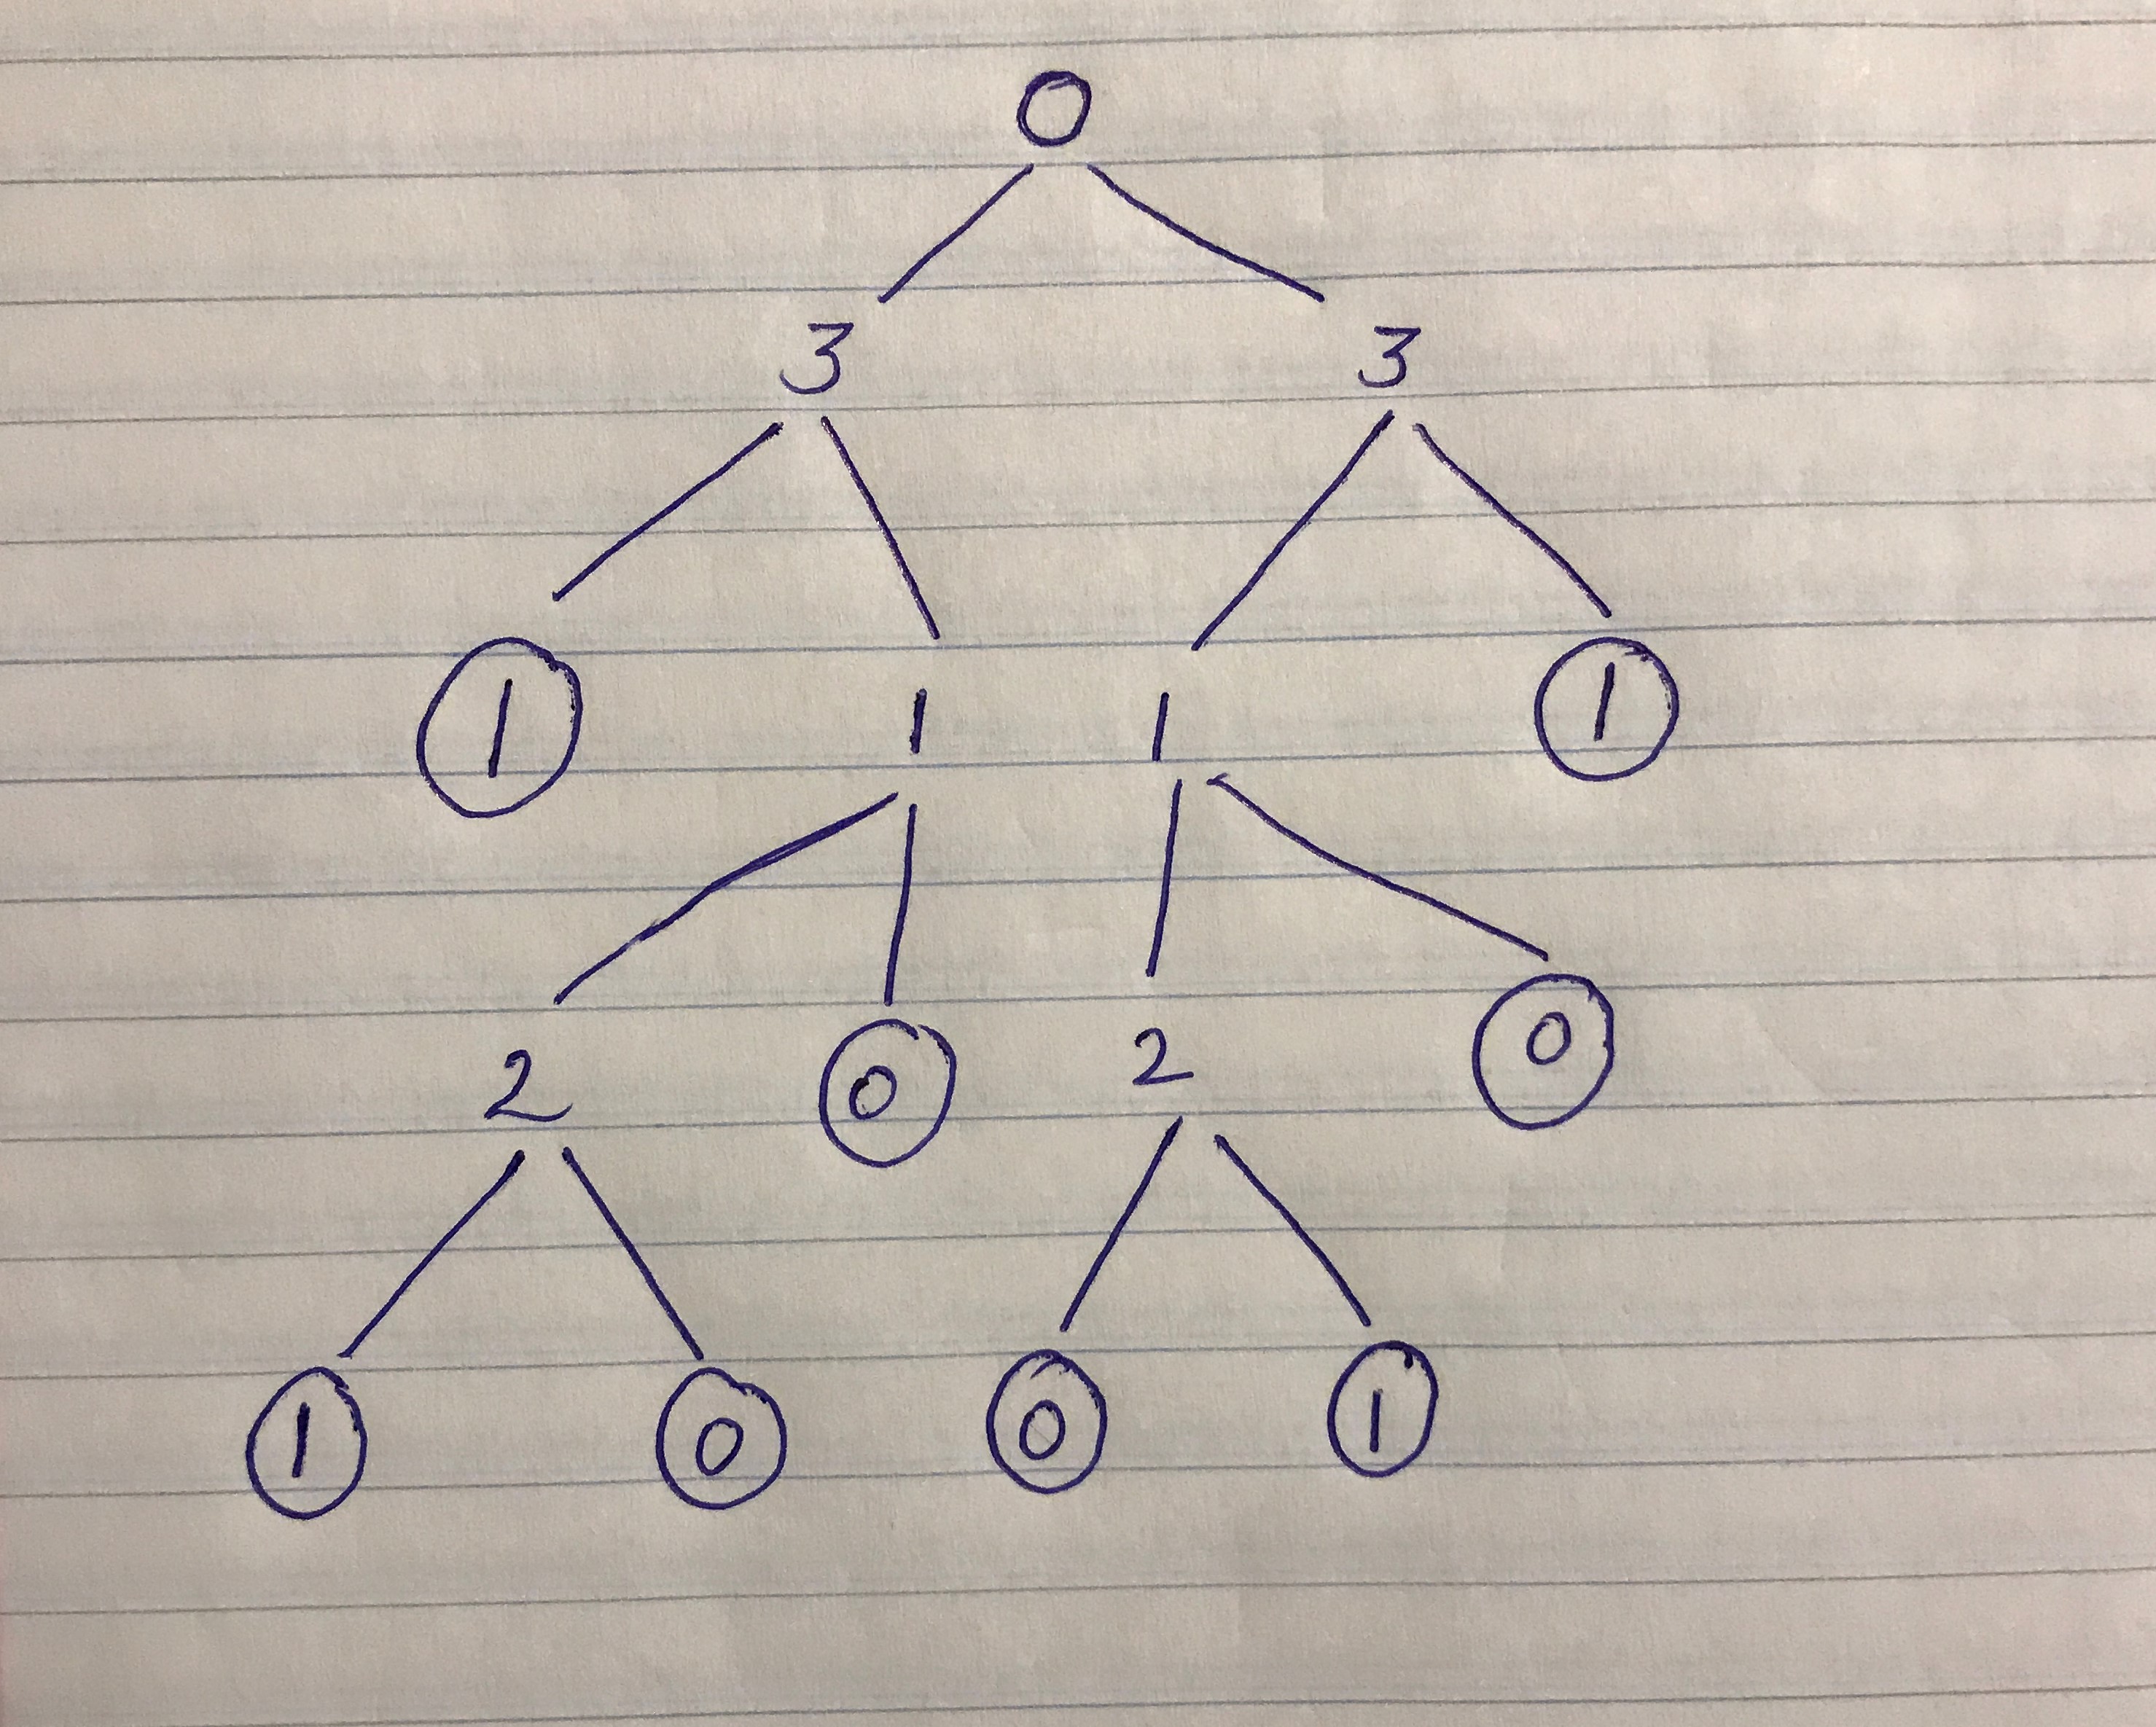 0
3 3
1 1 1 1
2 0 2 0
1 0 0 1